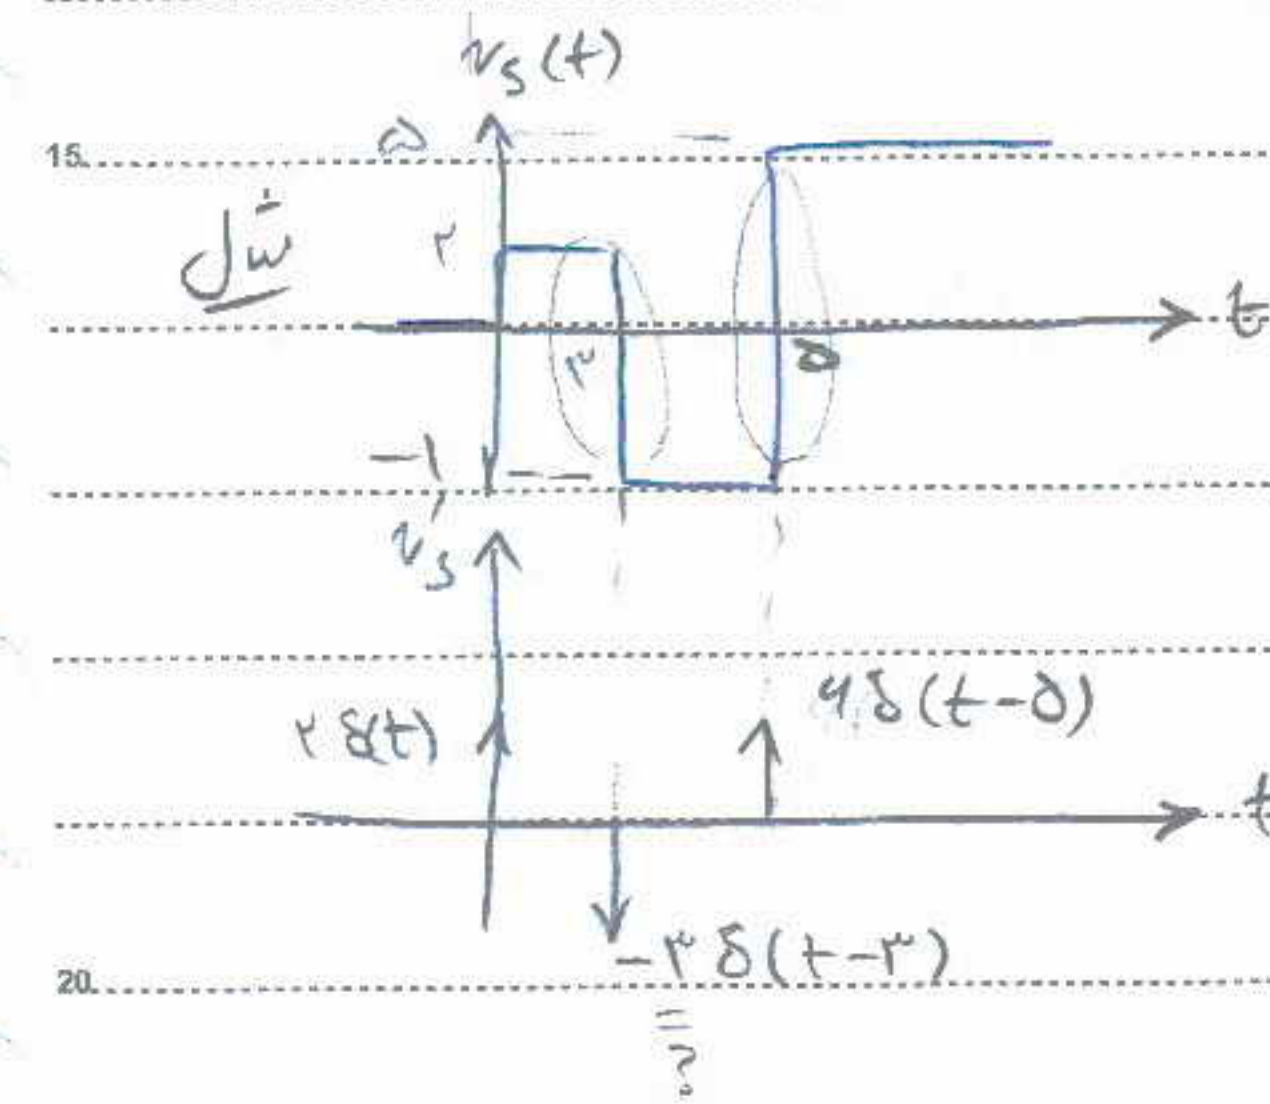 v_s(t)
15
۵
مثال
۲
t
۳
۵
-۱
v'_s
۲δ(t)
۶δ(t-۵)
t
-۳δ(t-۳)
20